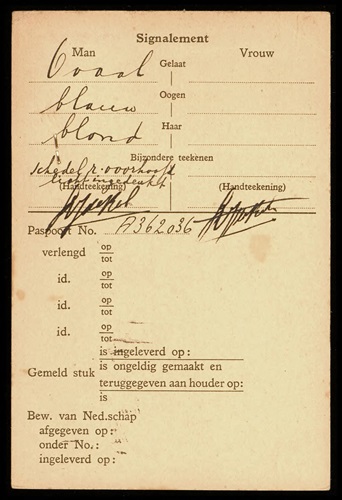 Signalement
Man Vrouw
Gelaat
Ovaal
Oogen
blauw
Haar
blond
Bijzondere teekenen
schedel r. voorhoofd
licht ingedeukt
(Handteekening) (Handteekening)
Paspoort No. A362036
verlengd op
tot
id. op
tot
id. op
tot
id. op
tot
is ingeleverd op:
Gemeld stuk is ongeldig gemaakt en
teruggegeven aan houder op:
is
Bew. van Ned.schap
afgegeven op:
onder No.:
ingeleverd op: